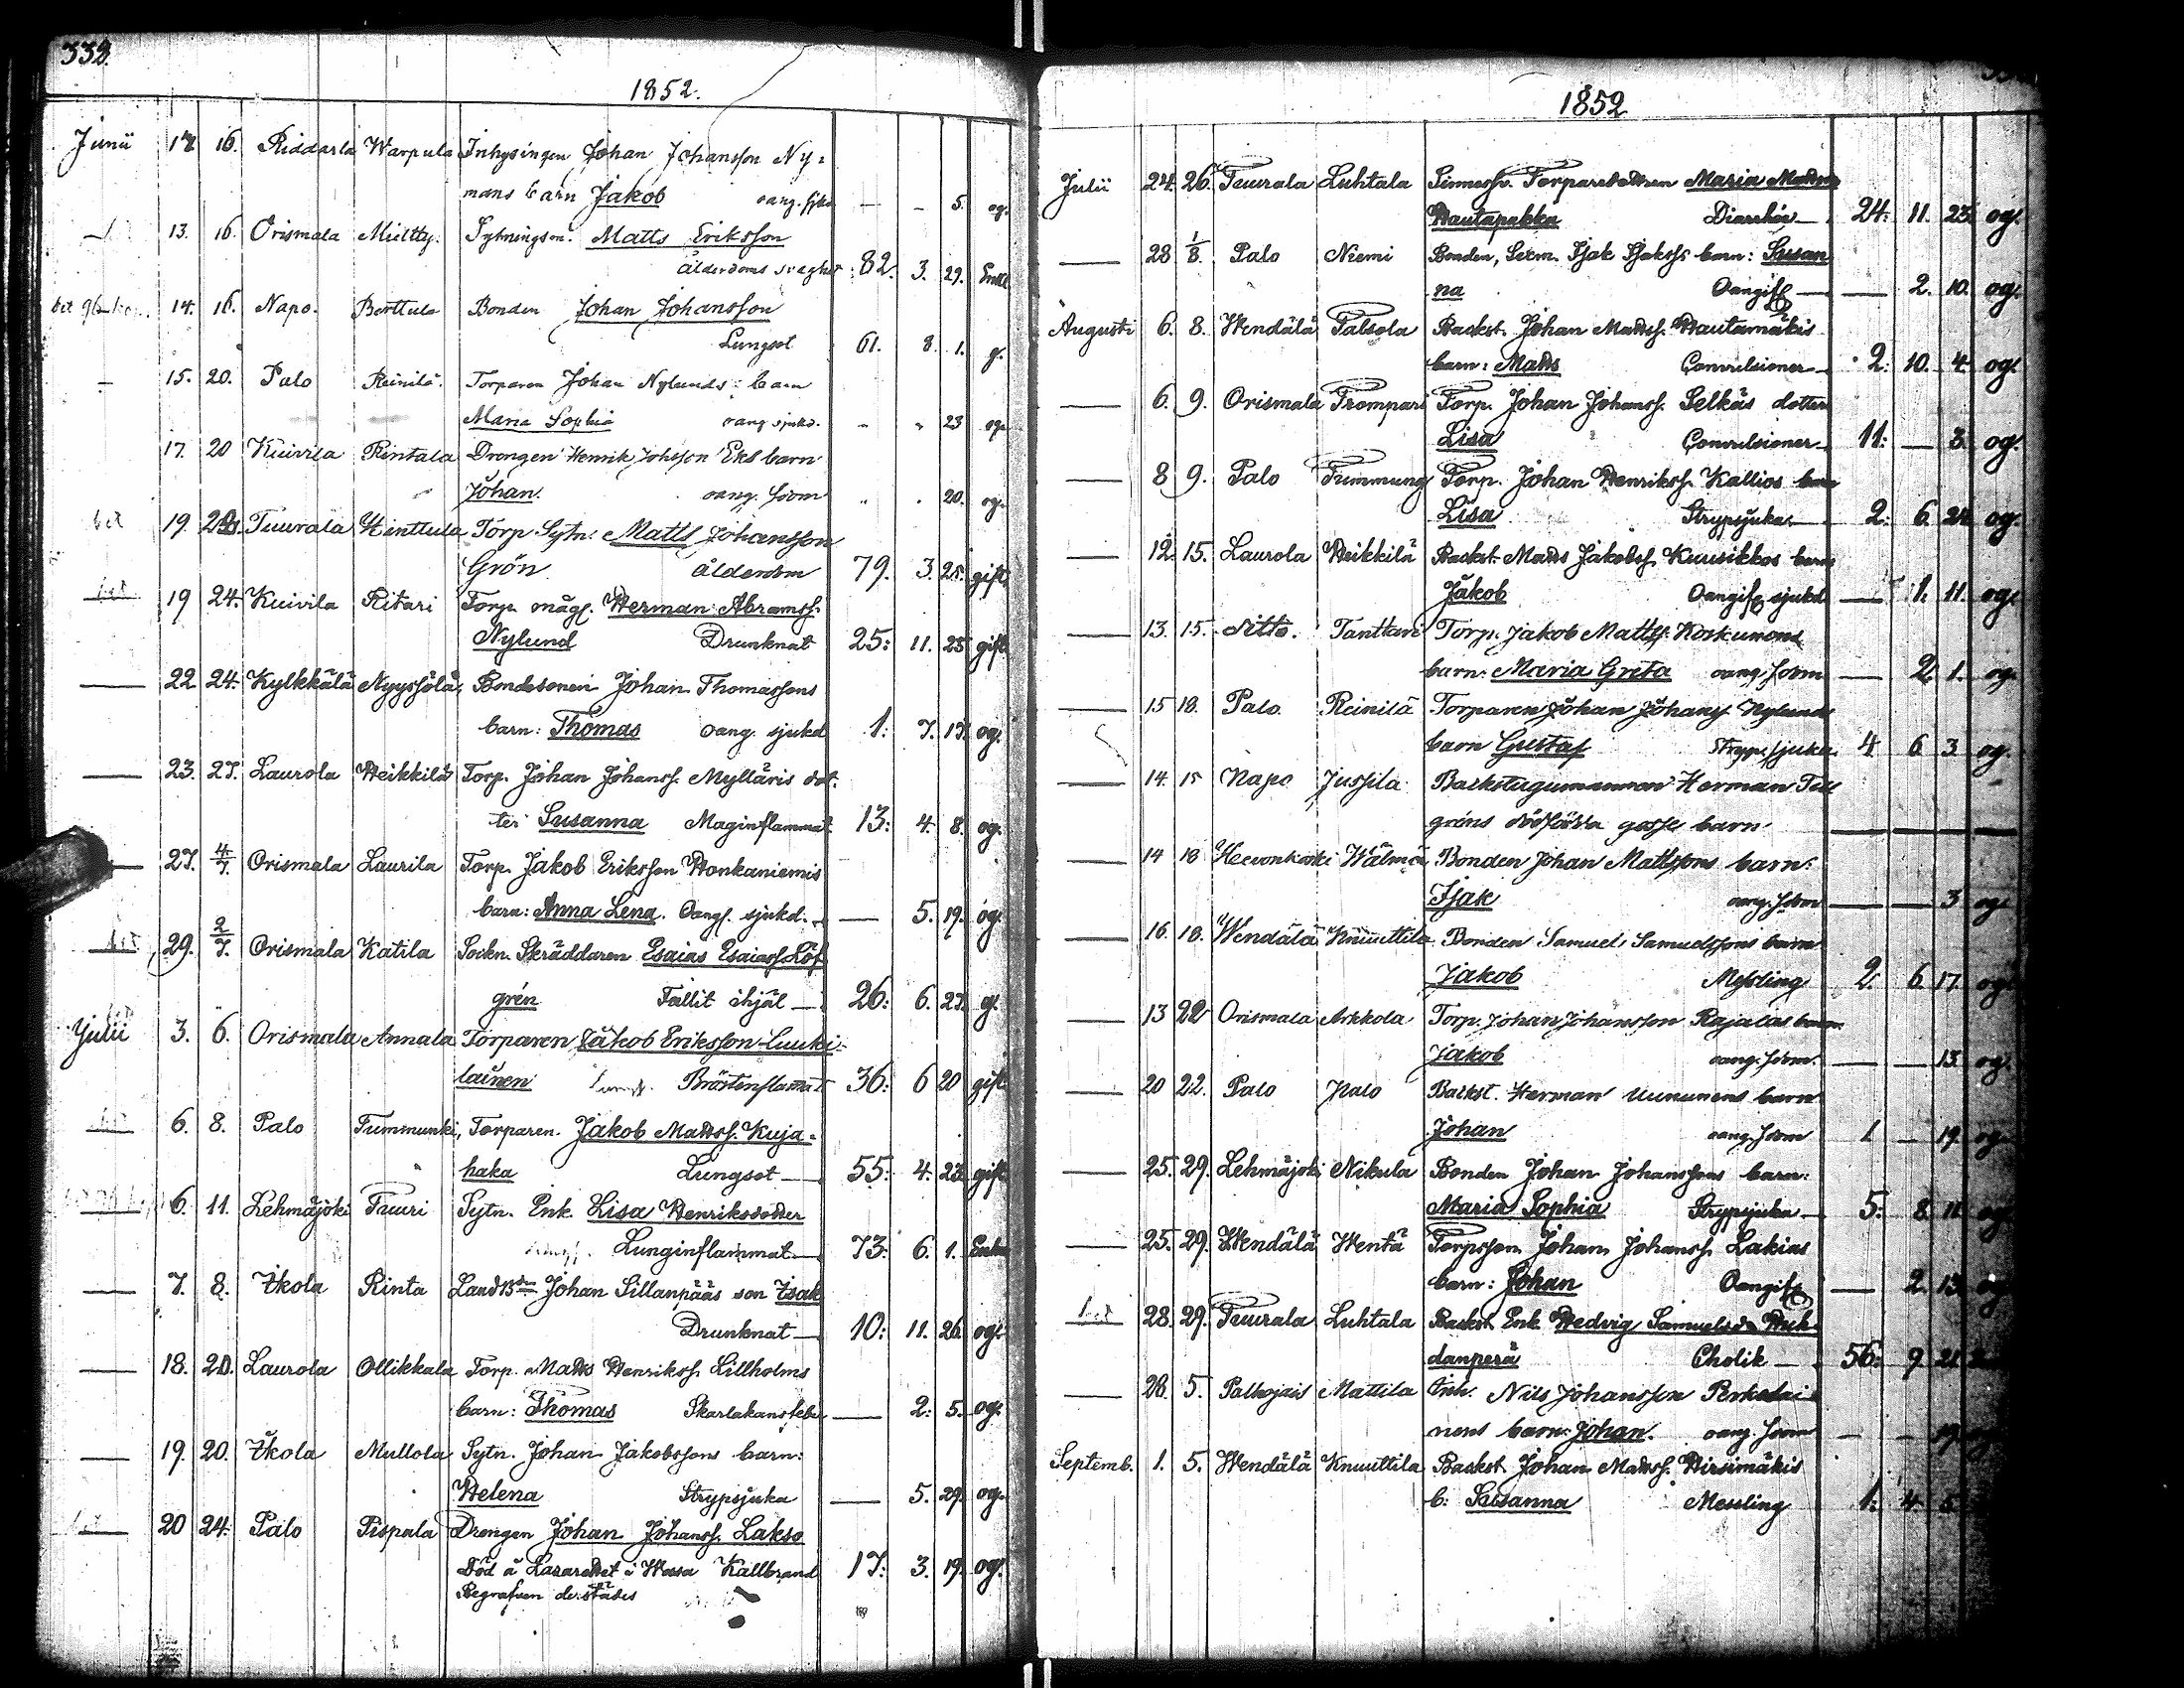 332.
1852.
Junii 12 16. Riddarla Warpula Inhysingen Johan Johansson Ny-
mans barn Jakob oang. sjkd — — 5. og.
13. 16. Orismala Mieltty. Sytningsm. Matts Eriksson
ålderdoms svaghet 82. 3. 29. Enkl
14. 16. Napo. Berttula Bonden Johan Johansson
Lungsot 61. 8. 1. g.
— 15. 20. Palo Reinilä. Torparen Johan Nylunds barn
Maria Sophia oang sjukd. " " 23 og.
17. 20 Kuivila Rintala Drengen Henrik Johsson Eks barn
Johan. oang. sdom " " 20. og.
bet 19. 20. Tuurala Hinttula Torp. Sytn. Matts Johansson
Grön ålderdom 79. 3. 25. gift
19 24. Kuivila Ritari Torp. måg. Herman Abramss.
Nylund Drunknat 25: 11. 25 gift
— 22 24. Kylkkälä Nyyssölä Bondesonen Johan Thomassons
barn: Thomas oang. sjukd 1: 7. 17. og.
— 23. 27. Laurola Heikkilä Torp. Johan Johanss. Mylläris dot-
ter Susanna Maginflammat. 13: 4. 8. og.
27. 4/7. Orismala Laurila Torp. Jakob Eriksson Honkaniemis
barn: Anna Lena. Oang. sjukd. — 5. 19. og.
29. 2/7. Orismala Katila Sockn. Skräddaren Esaias Esaiass. Löf-
grén Fallit ihjäl — 26: 6. 27. g.
Julii 3. 6. Orismala Annala Torparen Jakob Eriksson Luuki-
lainen Bröstinflamat 36: 6 20 gift
6. 8. Palo Tummunki, Torparen. Jakob Matss. Kuja-
haka Lungsot — 55: 4. 23. gift
6. 11. Lehmäjoki Tauri Sytn. Enk. Lisa Henriksdotter
Lunginflammat — 73: 6. 1. Enka
— 7. 8. Ikola Rinta Landsbdn Johan Sillanpääs son Isak
Drunknat — 10: 11. 26. og.
— 18. 20. Laurola Ollikkala Torp. Matts Henrikss. Lillholms
barn: Thomas Skarlakansfeber — 2: 5. og.
— 19. 20. Ikola Mullola Sytn. Johan Jakobssons barn:
Helena Strypsjuka — 5. 29. og.
20 24. Palo Pispala Drengen Johan Johanss. Lakso
Död å Lazarettet i Wasa Kallbrand 17: 3. 19. og.
Begrafven derstädes
1852
Julii 24. 26. Tuurala Luhtala Torparedottren Maria Matts
Hautapakka Diarrhée — 24: 11. 23. og.
— 28 1/8. Palo Niemi Bonden, Sexm. Isak Isakss. barn: Susan
na Oangif — — 2. 10. og.
Augusti 6. 8. Wendälä Talsola Backst. Johan Mattss. Hautamäkis
barn: Matts Convulsioner — 2: 10. 4. og.
— 6. 9. Orismala Trompari Torp. Johan Johanss. Selkäs dotter
Lisa Convulsioner — 11: — 3. og.
— 8 9. Palo Tummung Torp. Johan Henrikss. Kallios barn
Lisa Strypsjuka — 2: 6. 24 og.
— 12. 15. Laurola Heikkilä Backst. Matts Jakobss. Kuusikkos barn
Jakob Oangif sjukd — 1. 11. og.
— 13. 15. ditto. Tanttari Torp. Jakob Mattss. Koskunens
barn: Maria Greta oang. sdom — 2. 1. og.
— 15 18. Palo Reinilä Torparen Johan Johanss Nylunds
barn Gustaf Stryp. sjuka 4 6 3 og.
— 14. 15 Napo Jussila Backstugumannen Herman Till
gréns dödfödda gosse barn — — —
— 14 18 Wälmä Bonden Johan Mattssons barn:
Isak oang. sdom — — 3 og.
— 16. 18. Wendälä Knuuttila Bonden Samuel Samuelssons barn
Jakob Messling 2. 6 17. og
— 13 22 Orismala Arkkola Torp. Johan Johansson Rajalas barn
Jakob oang. sdom. — — 13. og.
— 20 22. Palo Palo Backst. Herman Uununens barn
Johan oang. sdom 1 — 19. og.
— 25. 29. Lehmäjoki Nikula Bonden Johan Johanssons barn:
Maria Sophia Strypsjuka — 5: 8. 11. og
— 25. 29. Wendälä Wentä Torpsson Johan Johanss. Lakias
barn: Johan Oangif — 2. 13. og
28. 29. Tuurala Luhtala Backst. Enk. Hedvig Samuelsd. Huh-
danperä Cholik — 56: 9. 21.
— 28. 5. Palhojais Mattila Inh. Nils Johansson Perkelai-
nens barn: Johan. oang. sdom — — 19.
Septemb. 1. 5. Wendälä Knuuttila Backst. Johan Mattss. Hirsimäkis
b: Susanna Messling 1: 4. 5.